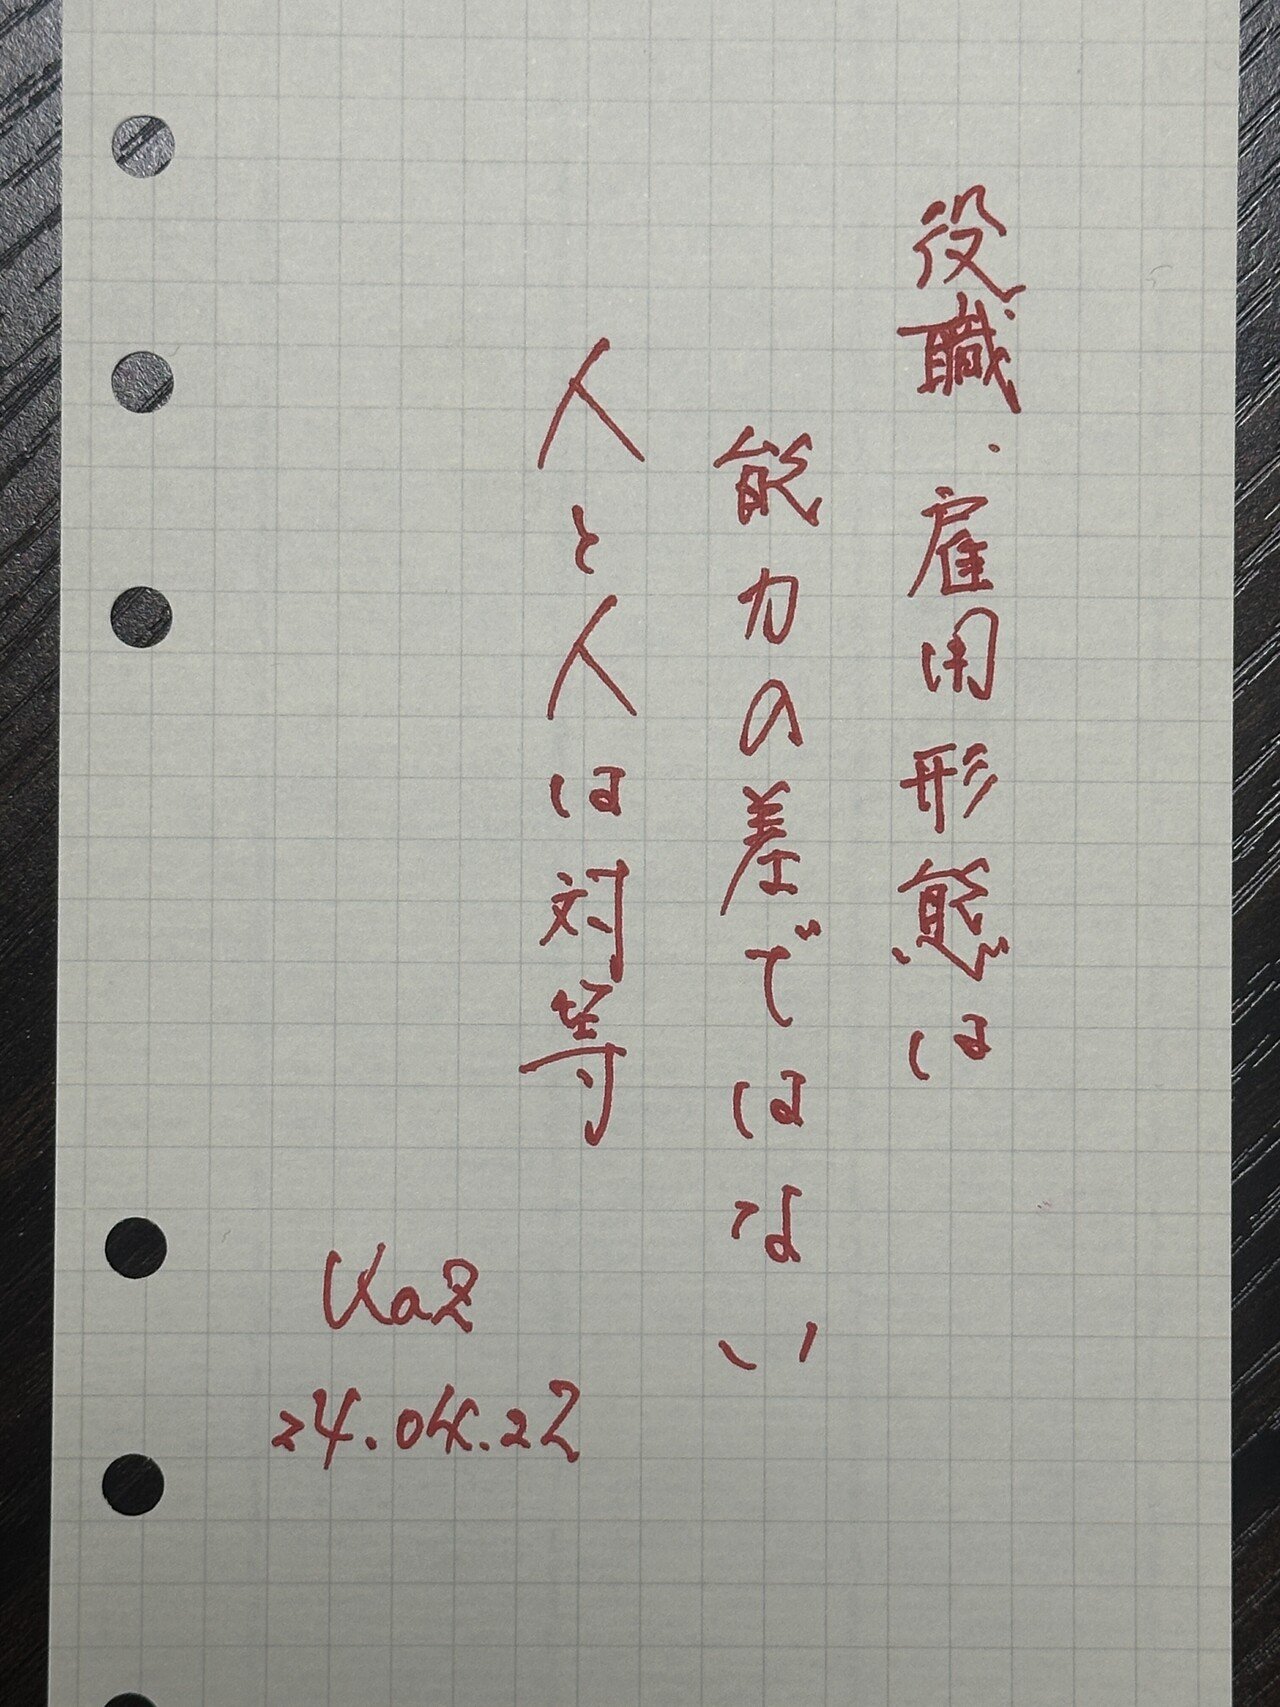 役職・雇用形態は
能力の差ではない
人と人は対等
Kaz
24.04.22